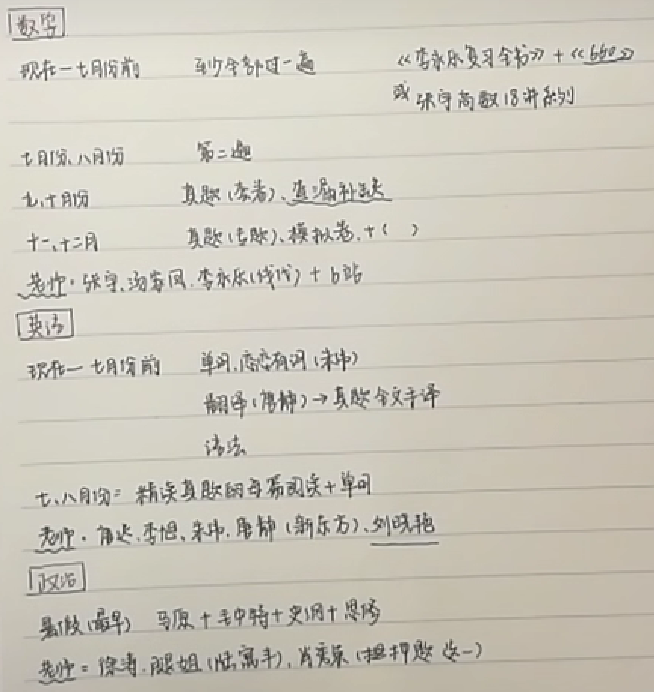 数学
现在一七月份前 至少全部过一遍 《李永乐复习全书》+《660》
或 张宇高数18讲系列
七月份、八月份 第二遍
九、十月份 真题(套卷)、查漏补缺
十一、十二月 真题(套题)、模拟卷、+( )
老师:张宇、汤家凤、李永乐(线代)+b站
英语
现在一七月份前 单词、恋恋有词(朱伟)
翻译(唐静)→真题全文手译
语法
七、八月份= 精读真题的每篇阅读+单词
老师:唐迟、李旭、朱伟、唐静(新东方)、刘晓艳
政治
暑假(最早) 马原+毛中特+史纲+思修
老师=徐涛、腿姐(陆寓丰)、肖秀荣(押题 选一)